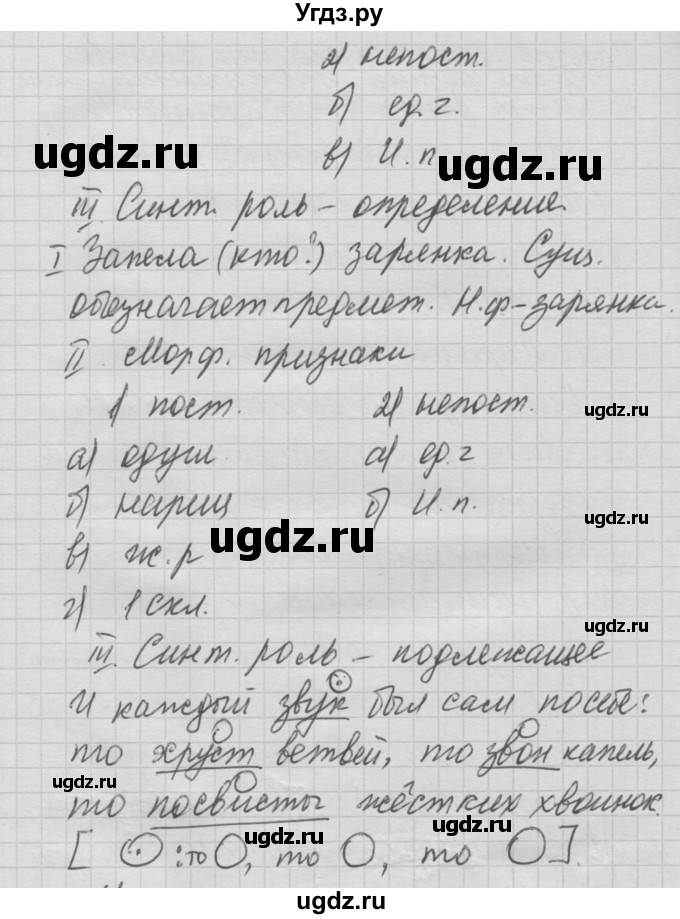 Угдз.ру
2) непост.
б) ед.ч.
в) И.п.
ugdz.ru
ugdz.ru
III. Синт. роль – определение
I Запела (кто?) зарянка. Сущ.
обозначает предмет. Н.ф–зарянка.
II. Морф. признаки
1) пост. 2) непост.
ugdz.ru
а) одуш. а) ед.ч
б) нариц б) И.п.
ugdz.ru
ugdz.ru
в) ж.р
г) 1 скл.
ugdz.ru
III. Синт. роль – подлежащее
И каждый звук был сам по себе:
то хруст ветвей, то звон капель,
ugdz.ru
то посвисты жёстких хвоинок.
ugdz.ru
[ :то , то , то ].
ugdz.ru
ugdz.ru